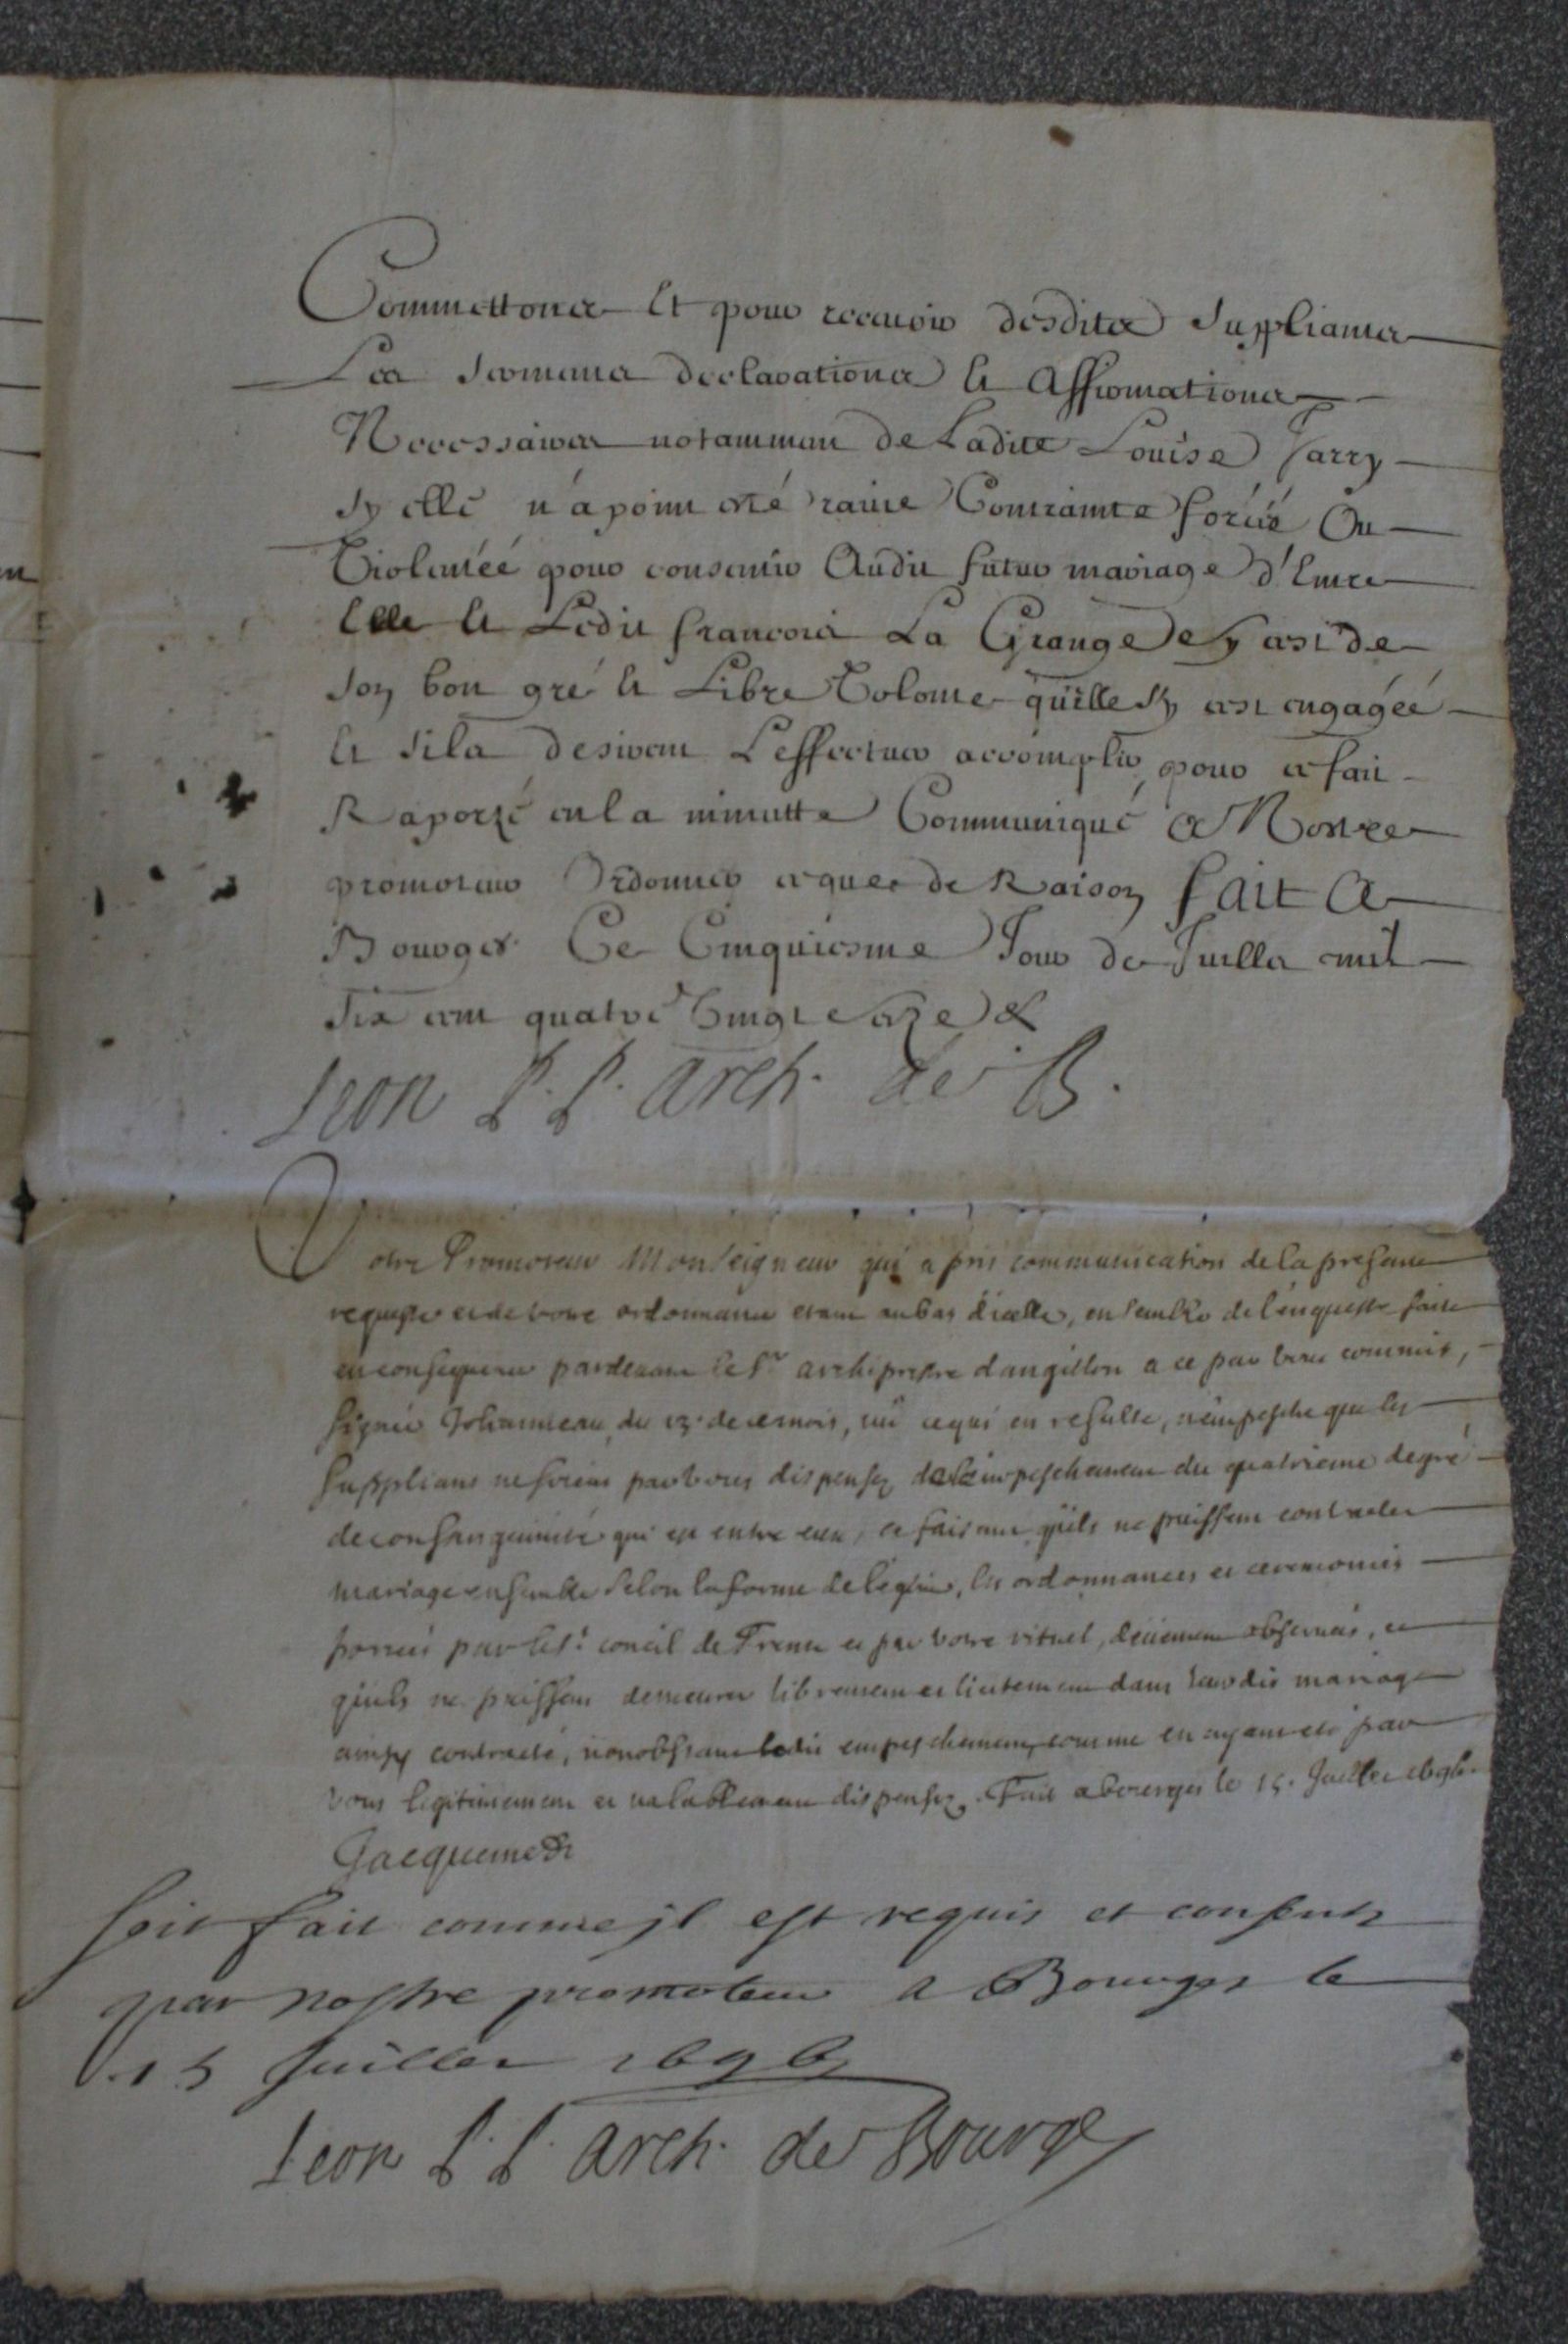 Commettons Et pour recevoir desdits Suppliants
Les sermens declarations et Affirmations
Necessaires notamment de Ladite Louise Jarry
sy elle n'a point esté ravie Contrainte forcéé Ou
Violentéé pour consentir Audit futur mariage d'Entre
Elle et Ledit francois La Grange et sy c'est de
son bon gré et Libre Volonte qu'elle s'y est engagéé
et s'ils desirent L'effectuer accomplir, pour ce fait
Raporté en la minutte Communiqué A Nostre
promoteur Ordonner ce que de Raison fait A
Bourges Ce Cinquiesme Jour de Juillet mil
Six cent quatre Vingt seize &
Leon P. P. arch. de B.
Votre Promoteur Monseigneur qui a pris communication de la presente
requeste et de votre ordonnance etant au bas d'icelle, ensemble de l'enqueste faite
en consequence pardevant le Sr archiprestre dangillon a ce par vous commis,
signée Johanneau, du 13. de ce mois, vû ce qui en resulte, n'empesche que les
supplians ne soient par vous dispensez de l'empeschement du quatrieme degré
de consanguinité qui est entre eux, ce faisant qu'ils ne puissent contracter
mariage ensemble selon la forme de l'eglise, les ordonnances et ceremonies
portées par le St. concil de Trente et par votre rituel, deüement observées, et
qu'ils ne puissent demeurer librement et licitement dans leurdit mariage
ainsy contracté, nonobstant ledit empeschement, comme en ayant eté par
vous legitimement et valablement dispensez. Fait a bourges le 15. Juillet 1696.
Jacquemet
soit fait comme jl est requis et consenti
par nostre promoteur a Bourges le
15 Juillet 1696
Leon P. P. arch. de Bourges